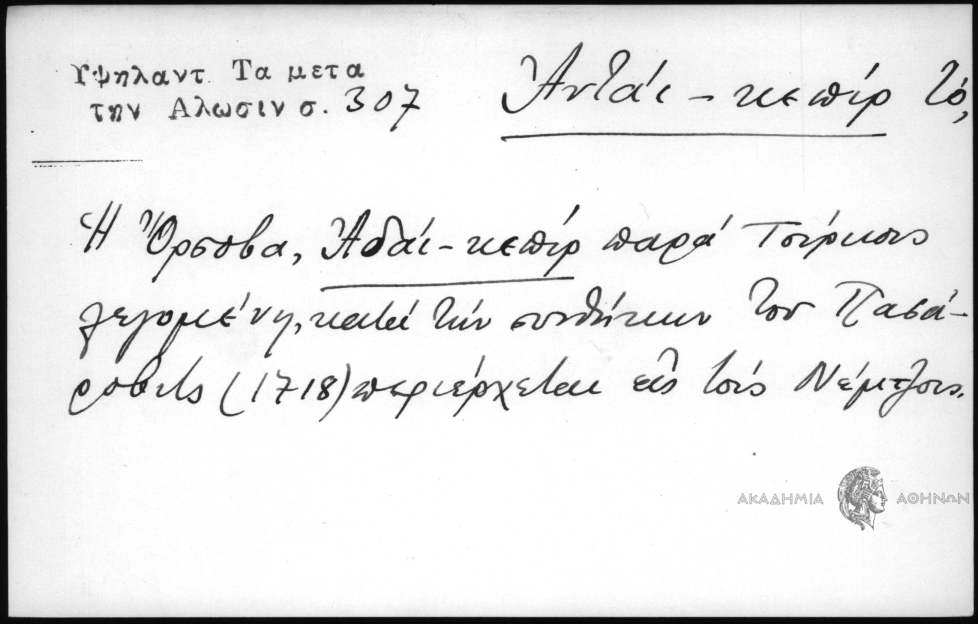 Υψηλαντ. Τα μετα
την Αλωσιν σ. 307
Ἀντάι-κεπίρ τό,
Ἡ Ὄρσοβα, Ἀδάι-κεπίρ παρά Τούρκοις
λεγομένη, κατά τήν συνθήκην του Πασά-
ροβιτς (1718) περιέρχεται εἰς τούς Νέμτζους.
ΑΚΑΔΗΜΙΑ ΑΘΗΝΩΝ